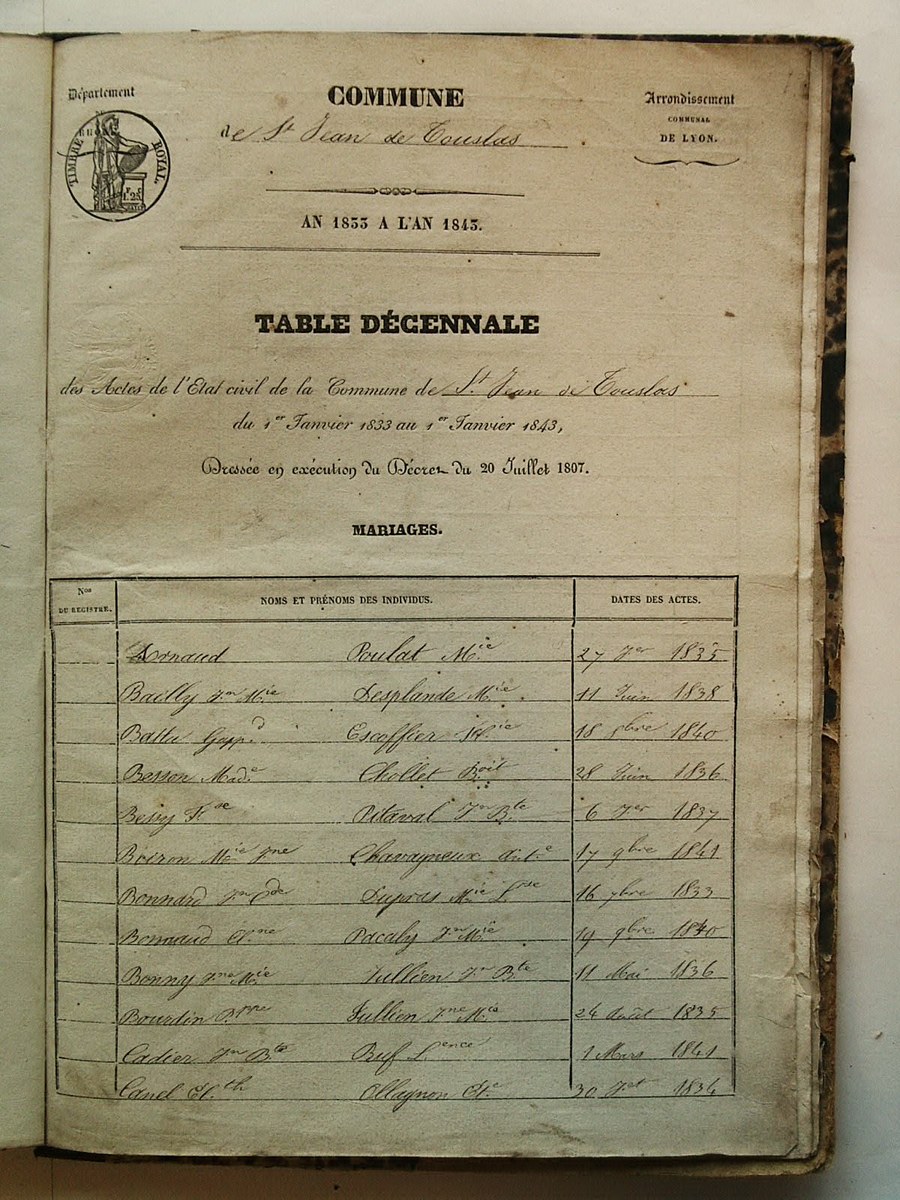 Département
COMMUNE
Arrondissement
COMMUNAL
DE LYON.
TIMBRE ROYAL.
de St Jean de Touslas
AN 1833 A L'AN 1843.
TABLE DÉCENNALE
des Actes de l'Etat civil de la Commune de St. Jean de Touslas
du 1er Janvier 1833 au 1er Janvier 1843,
Dressée en exécution du Décret du 20 Juillet 1807.
MARIAGES.
Nos DU REGISTRE. NOMS ET PRÉNOMS DES INDIVIDUS. DATES DES ACTES.
Arnaud Poulat Mie 27 Jer 1835
Bailly Jn Mie Desplande Mie 11 Juin 1838
Escoffier 18 1840
Besson Made Chollet Boit 28 Juin 1836
Bessy Pitaval Jn Bte 6 Jer 1837
Boiron Mie Jne Chavagneux Ante 17 9bre 1841
Bonnard Jn Cde Dupras Mie Lse 16 7bre 1833
Bonnaud Pacaly Jn Mie 19 9bre 1840
Bonny Jne Mie Jullien Jn Bte 11 Mai 1836
Bourdin Jullien Jne Mie 24 Août 1835
Cadier Jn Bte Buf Lence 1 Mars 1841
Canel El.th Ollagnon Et.e 30 Jet 1834